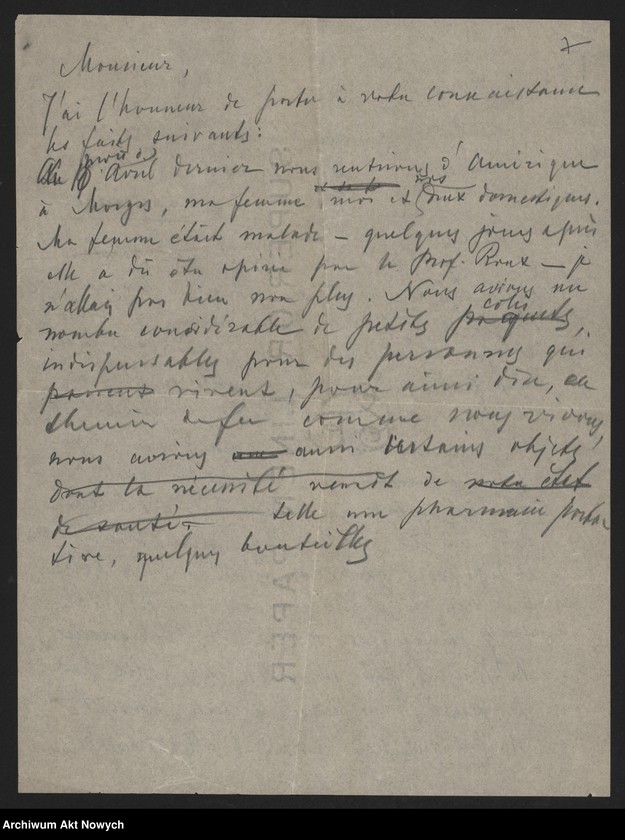 7
Monsieur,
J'ai l'honneur de porter à votre connaissance
les faits suivants:
mois d'
Au Avril dernier nous rentrions d'Amérique
à Morges, ma femme moi et nos deux domestiques.
Ma femme était malade – quelques jours après
elle a dû être opérée par le Prof. Roux – je
n'allais pas bien non plus. Nous avions un
colis
nombre considérable de petits paquets,
indispensables pour des personnes qui
passent vivent, pour ainsi dire, en
chemin de fer comme nous vivons,
nous avions aussi certains objets
dont la nécessité venait de notre état
de santé, telle une pharmacie porta
tive, quelques bouteilles
SUPERFINE PAPER
Archiwum Akt Nowych